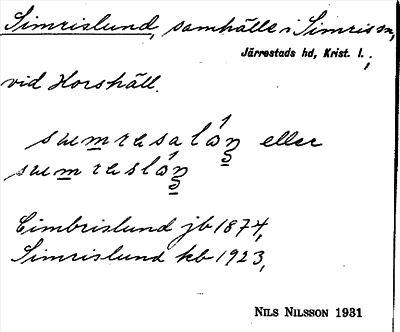 Simrislund, samhälle i Simris sn,
Järrestads hd, Krist. l.,
vid Horshäll.
eller
Cimbrislund jb 1874,
Simrislund kb 1923,
NILS NILSSON 1931